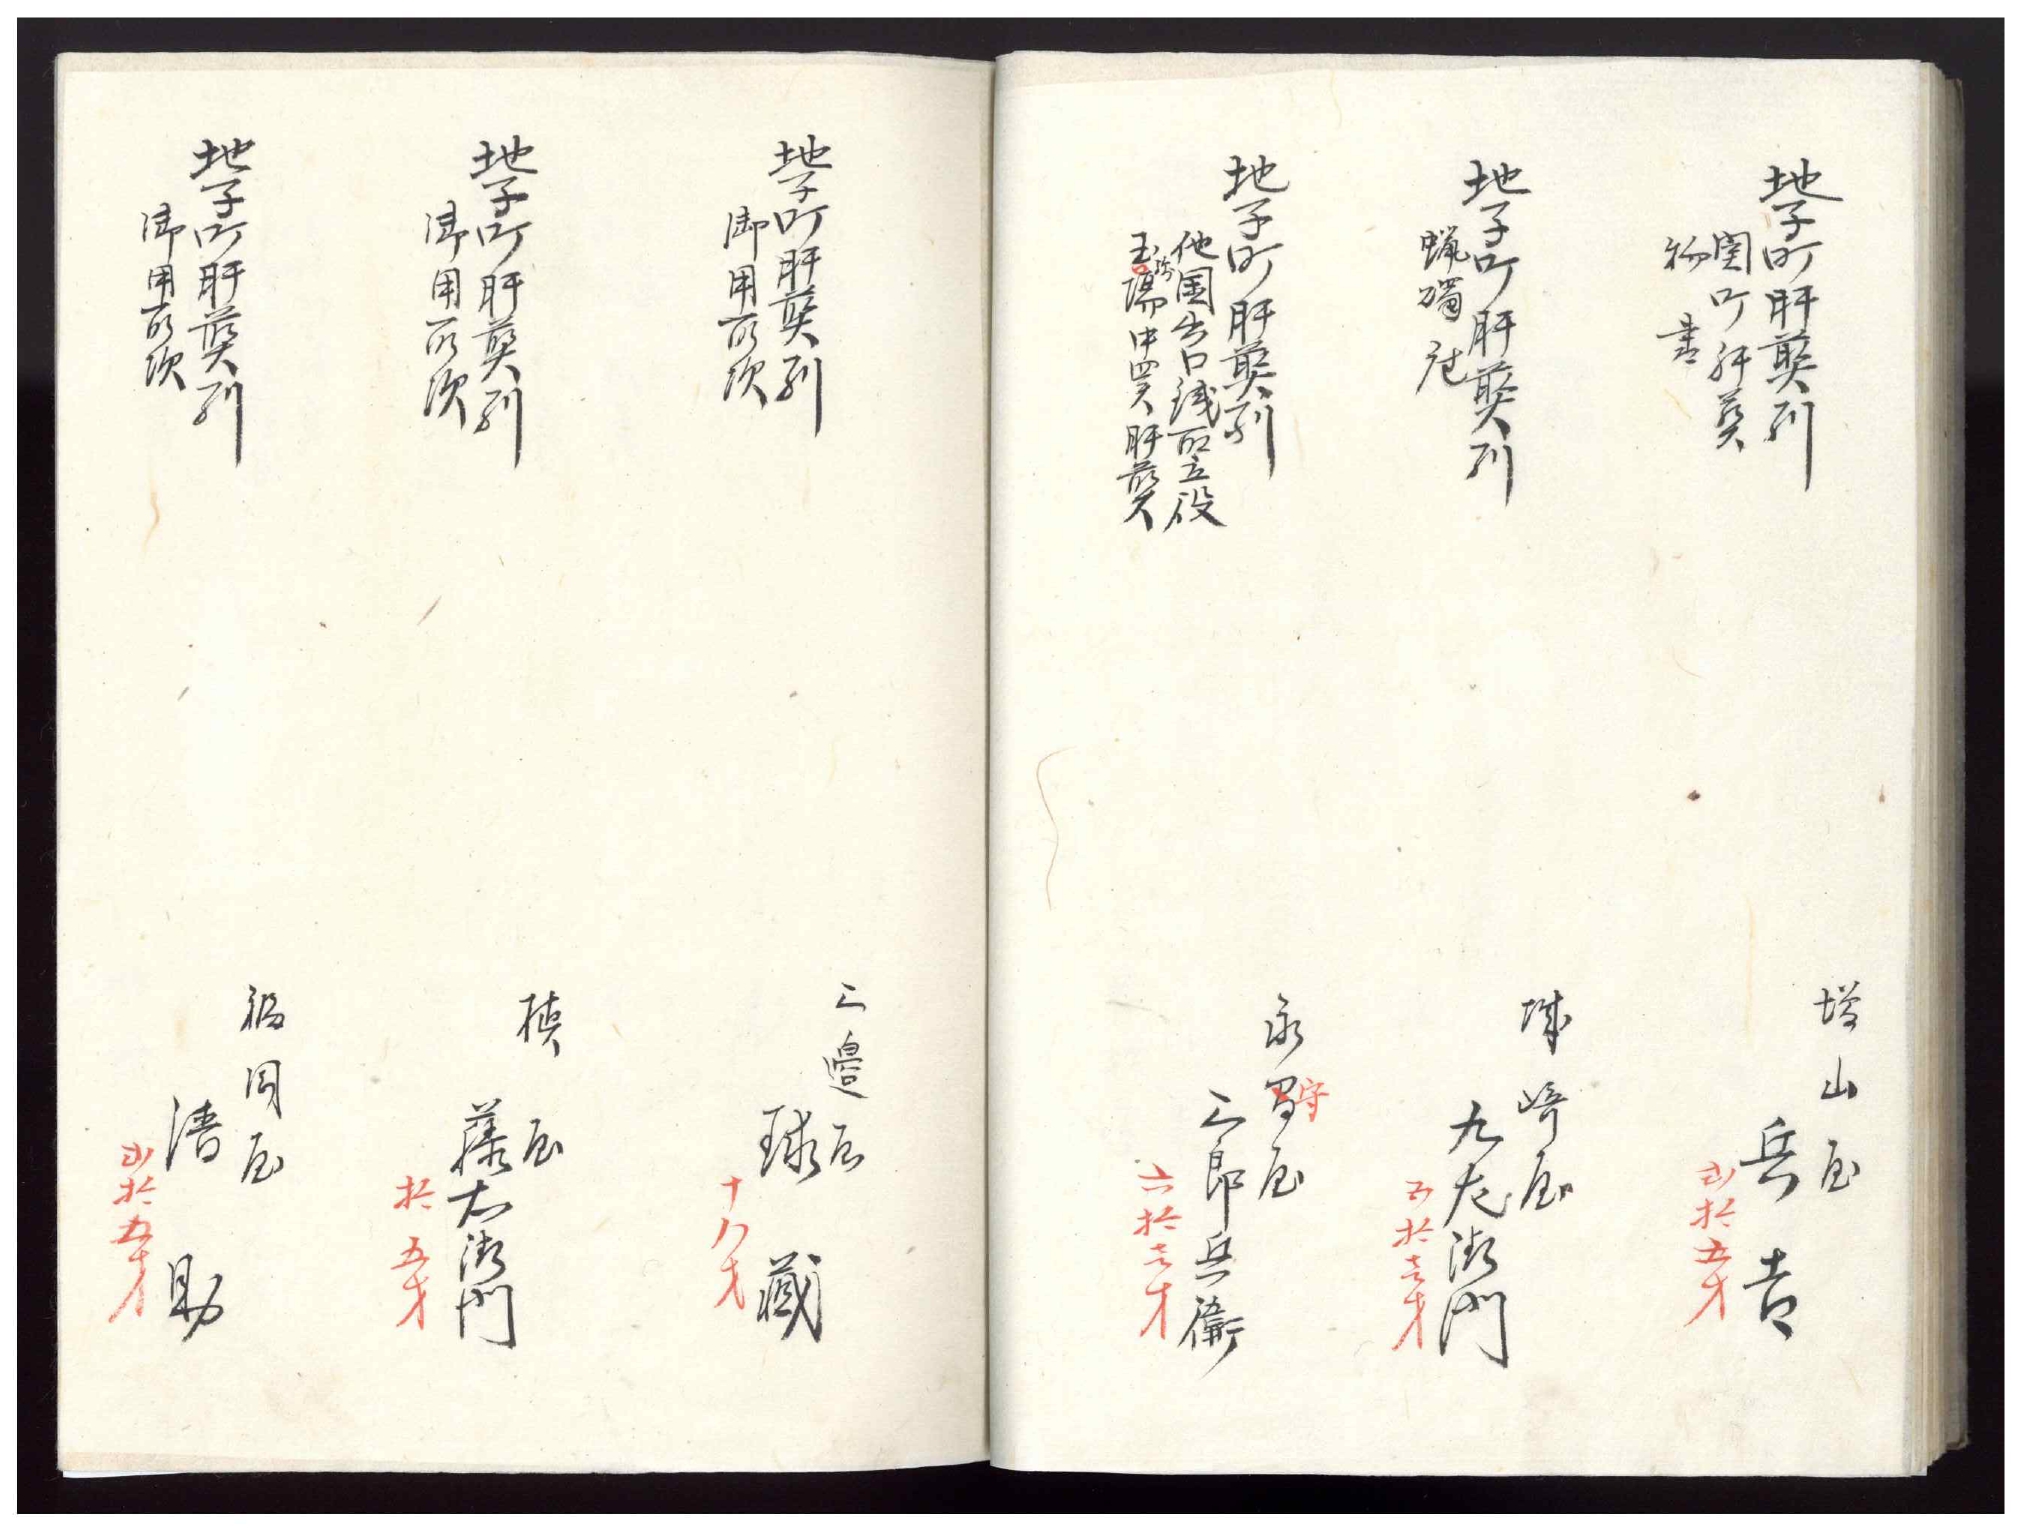 地子町肝煎列
関町肝煎
物書
塔山屋
兵吉
弐拾五才
地子町肝煎列
蝋燭座
城崎屋
九左衛門
五拉壱才
地子町肝煎列
他国出口銭取立役
玉場中四人肝煎
永昌屋
守
三郎兵衛
六拾壱才
地子町肝煎列
御用取次
三邊屋
球蔵
十八才
地子町肝煎列
御用取次
槙屋
藤右衛門
拾五才
地子町肝煎列
御用取次
福岡屋
清助
弐拾五才